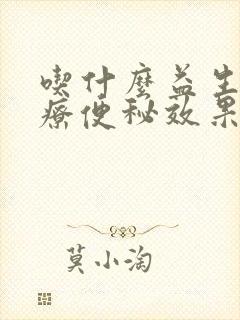 喫什麼益生
療便秘效果
莫小淘